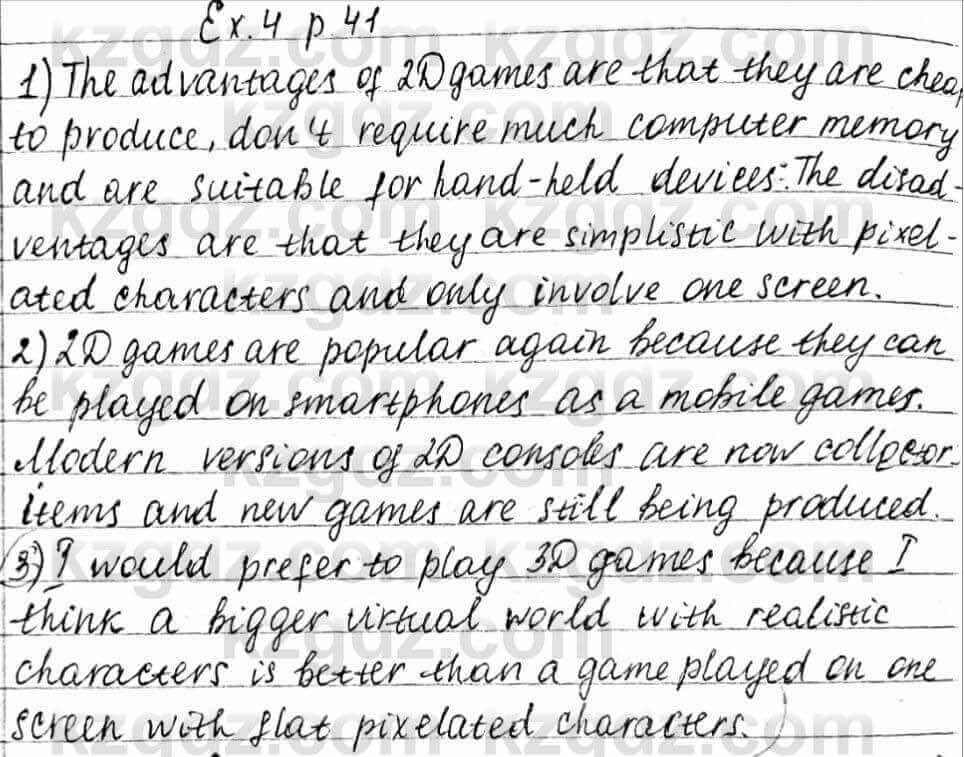 Ex. 4 p 41
1) The advantages of 2D games are that they are cheap
to produce, don't require much computer memory
and are suitable for hand-held devices. The disad-
ventages are that they are simplistic with pixel-
ated characters and only involve one screen.
2) 2D games are popular again because they can
be played on smartphones as a mobile games.
Modern versions of 2D consoles are now collector
items and new games are still being produced.
3) I would prefer to play 3D games because I
think a bigger virtual world with realistic
characters is better than a game played on one
screen with flat pixelated characters.